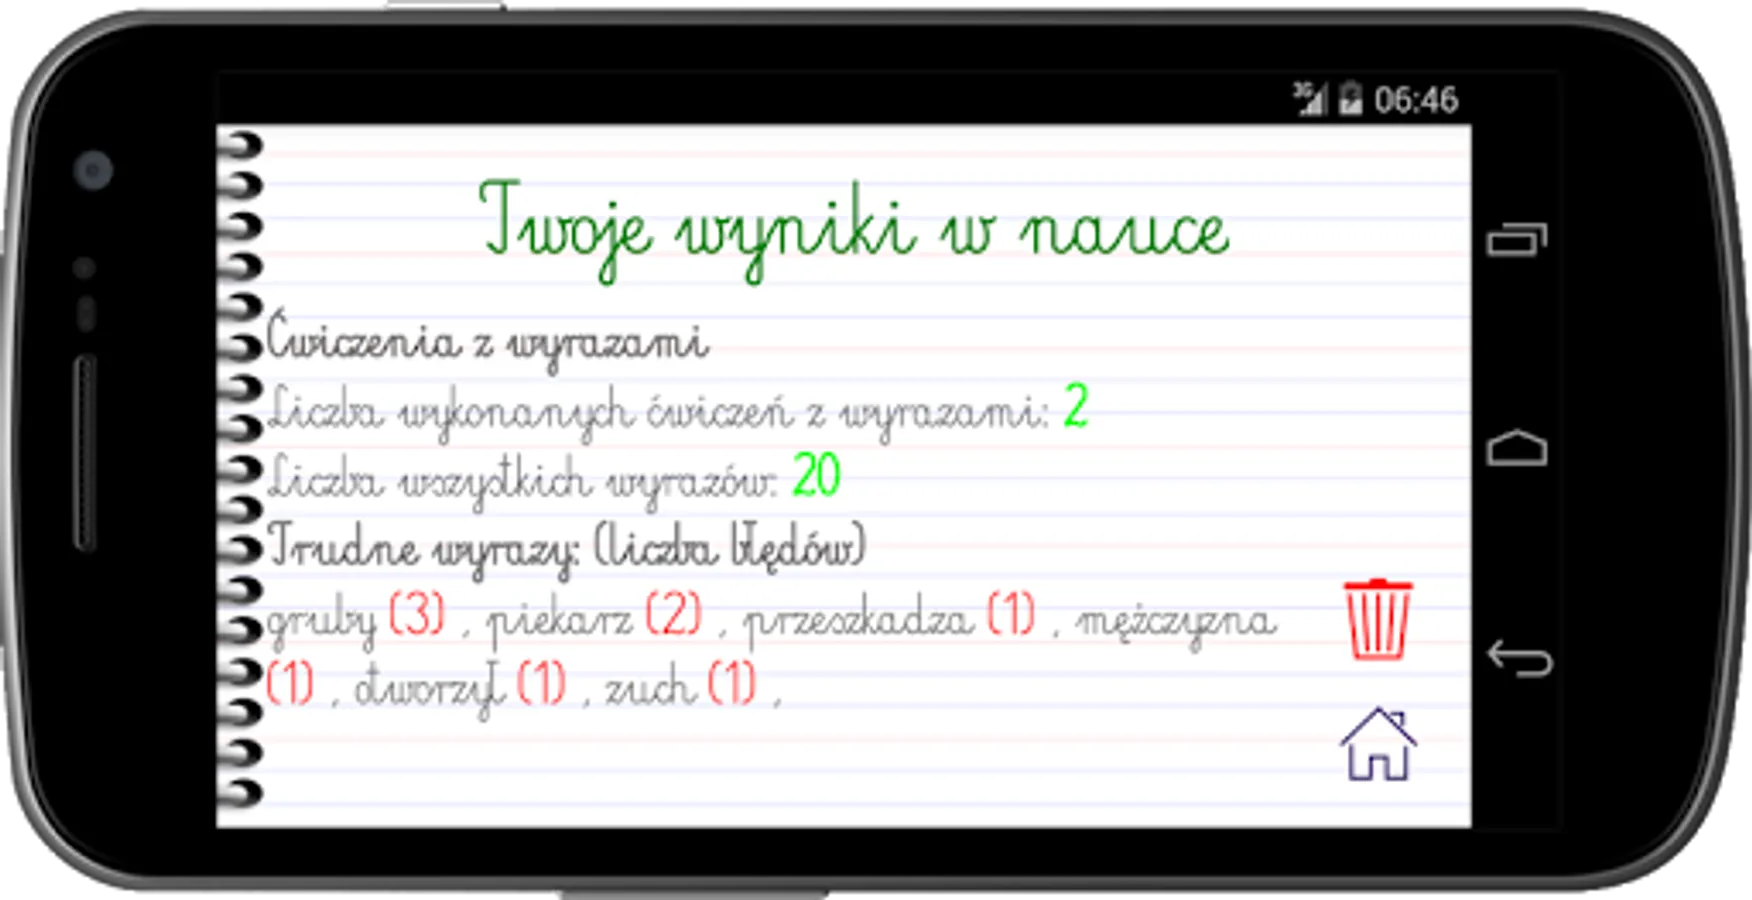 3G 06:46
Twoje wyniki w nauce
Ćwiczenia z wyrazami
Liczba wykonanych ćwiczeń z wyrazami: 2
Liczba wszystkich wyrazów: 20
Trudne wyrazy: (liczba błędów)
gruby (3) , piekarz (2) , przeszkadza (1) , mężczyzna
(1) , otworzył (1) , zuch (1) ,